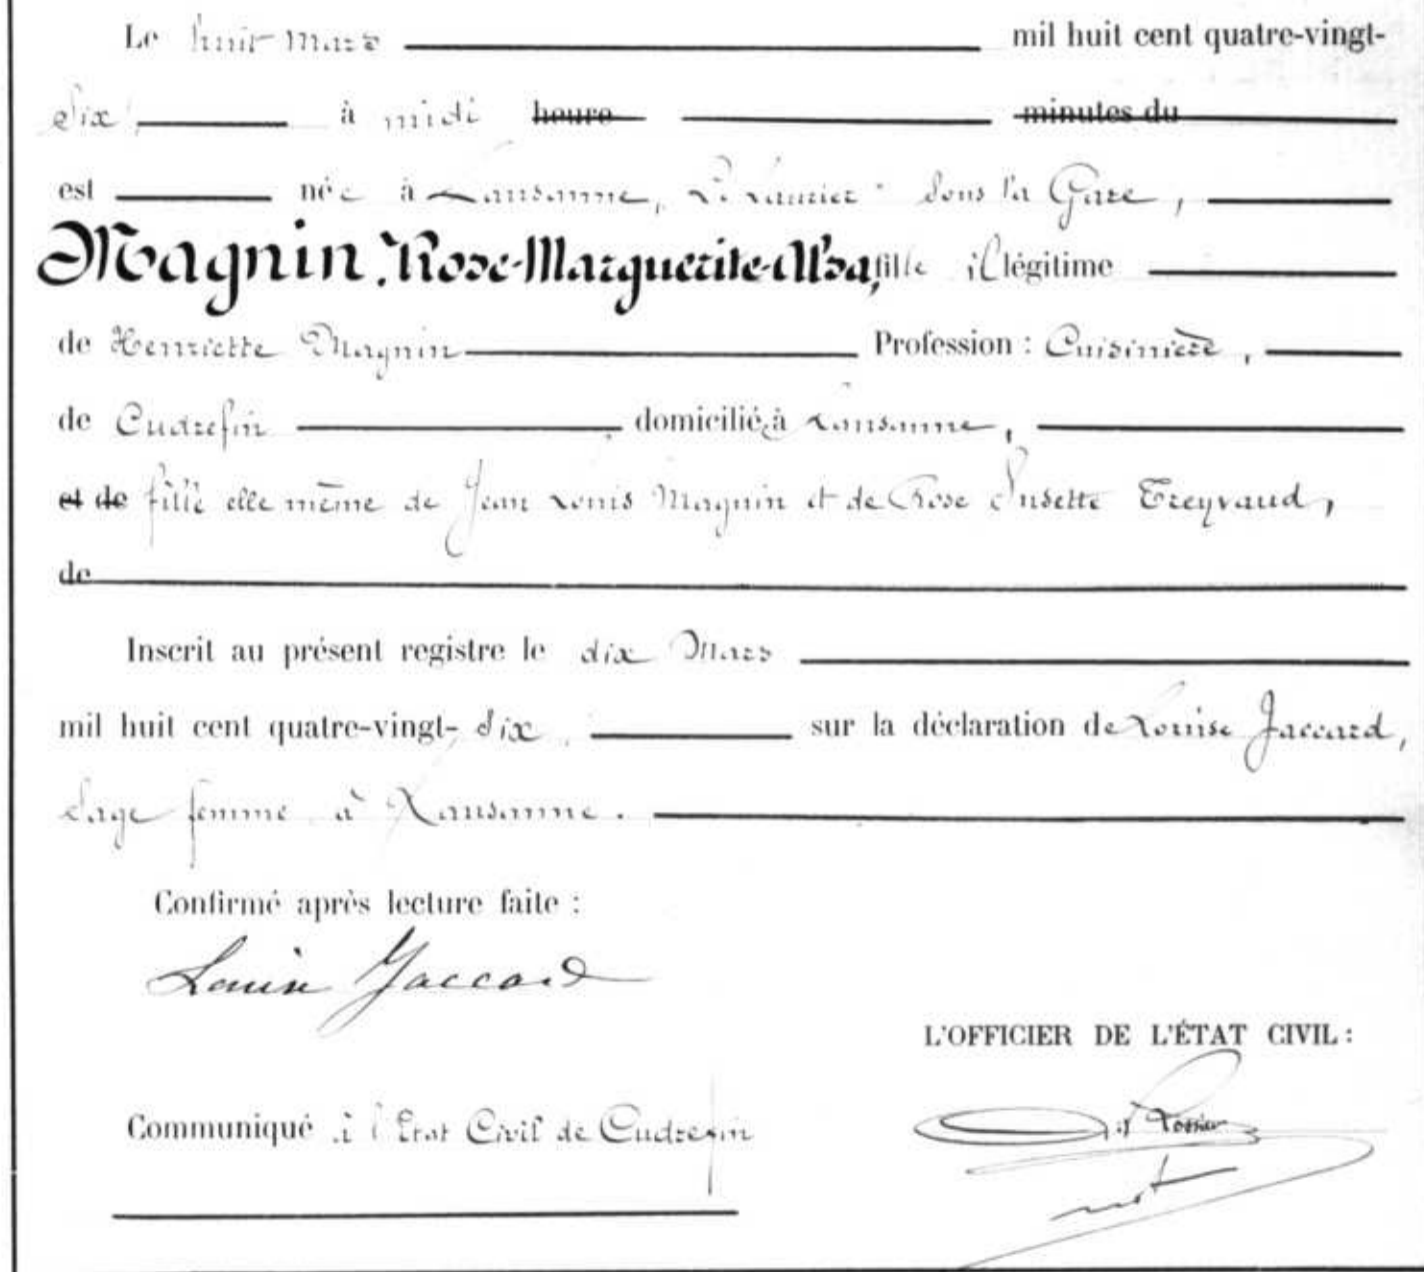 Le huit Mars mil huit cent quatre-vingt-
dix, à midi heure minutes du
est née à Lausanne, Le Laurier sous la Gare,
Magnin, Rose-Marguerite-Alsa, fille illégitime
de Henriette Magnin Profession : Cuisinière,
de Cudrefin domiciliée à Lausanne,
et de fille elle même de Jean Louis Magnin et de Rose Susette Treyvaud,
de
Inscrit au présent registre le dix Mars
mil huit cent quatre-vingt-dix, sur la déclaration de Louise Jaccard,
sage femme à Lausanne.
Confirmé après lecture faite :
Louise Jaccard
L'OFFICIER DE L'ÉTAT CIVIL :
Communiqué à l'Etat Civil de Cudrefin